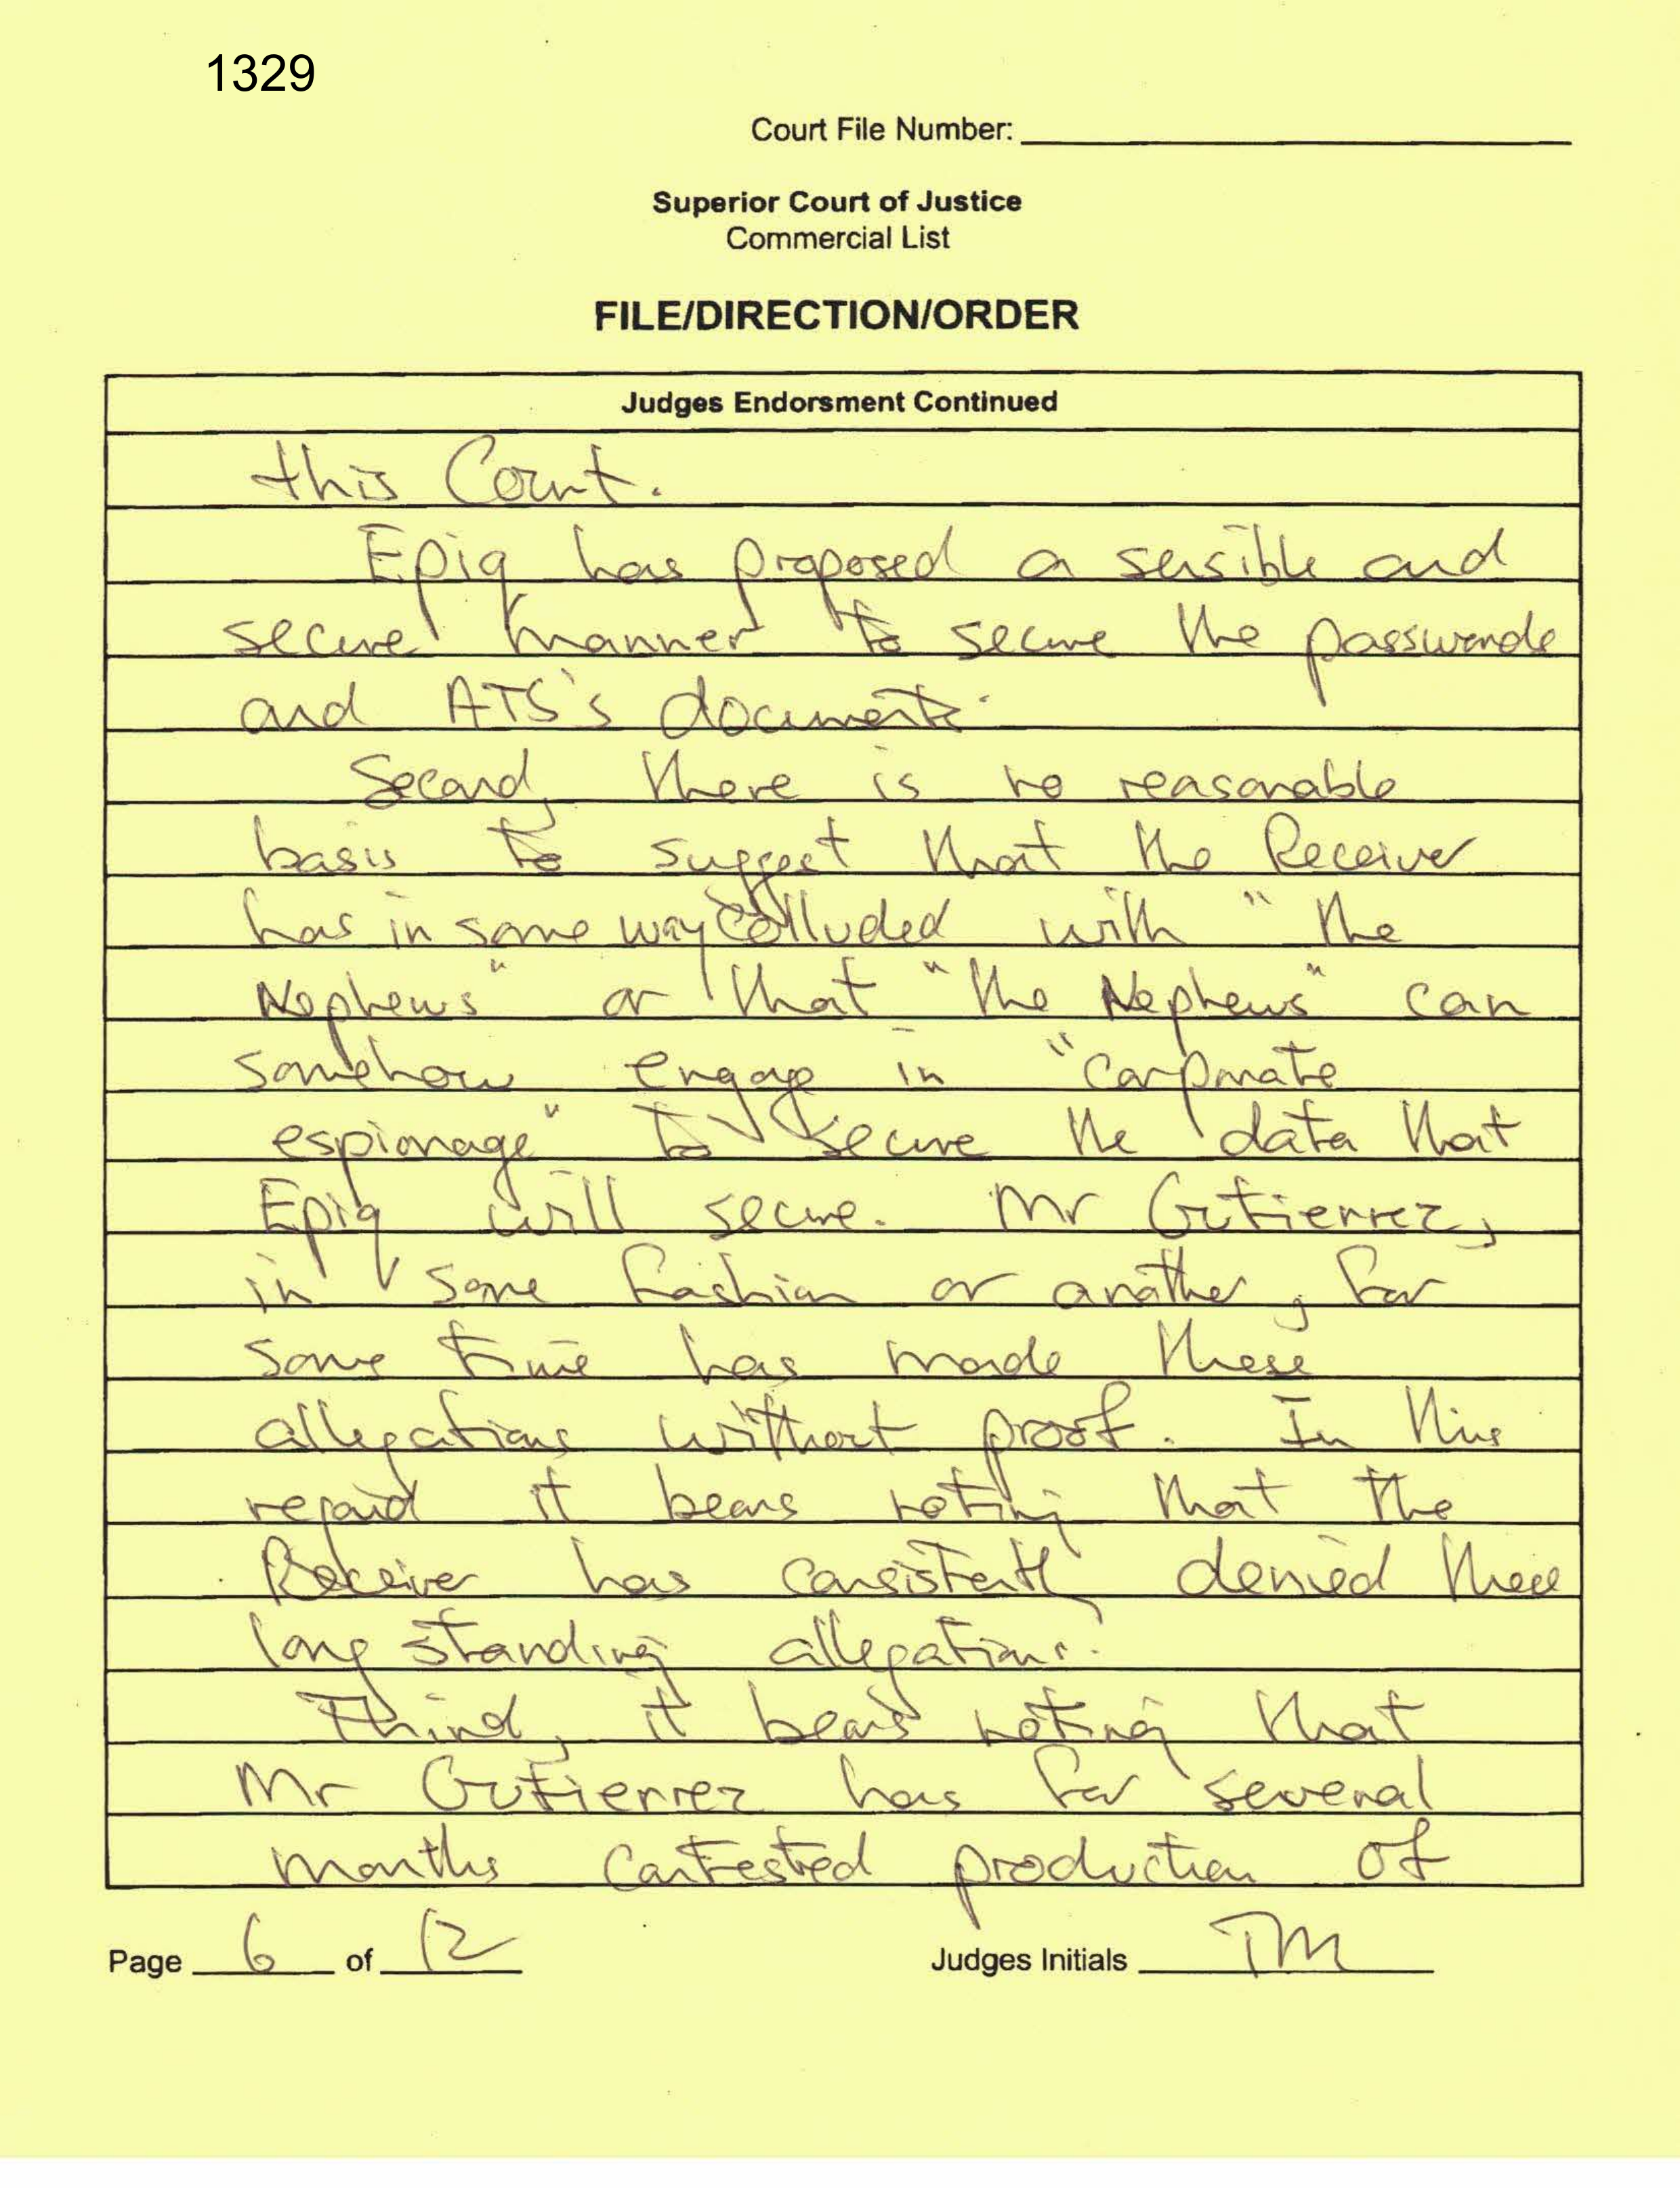 1329
Court File Number:
Superior Court of Justice
Commercial List
FILE/DIRECTION/ORDER
Judges Endorsment Continued
this Court.
Epiq has proposed a sensible and
secure manner to secure the passwords
and ATS's documents.
Second, there is no reasonable
basis to suggest that the Receiver
has in some way colluded with "the
Nephews" or that "the Nephews" can
somehow engage in "corporate
espionage" to secure the data that
Epiq will secure. Mr Gutierrez,
in some fashion or another, for
some time has made these
allegations without proof. In this
regard it bears noting that the
Receiver has consistently denied these
long standing allegations.
Third, it bears noting that
Mr Gutierrez has for several
months contested production of
Page 6 of 12 Judges Initials TM